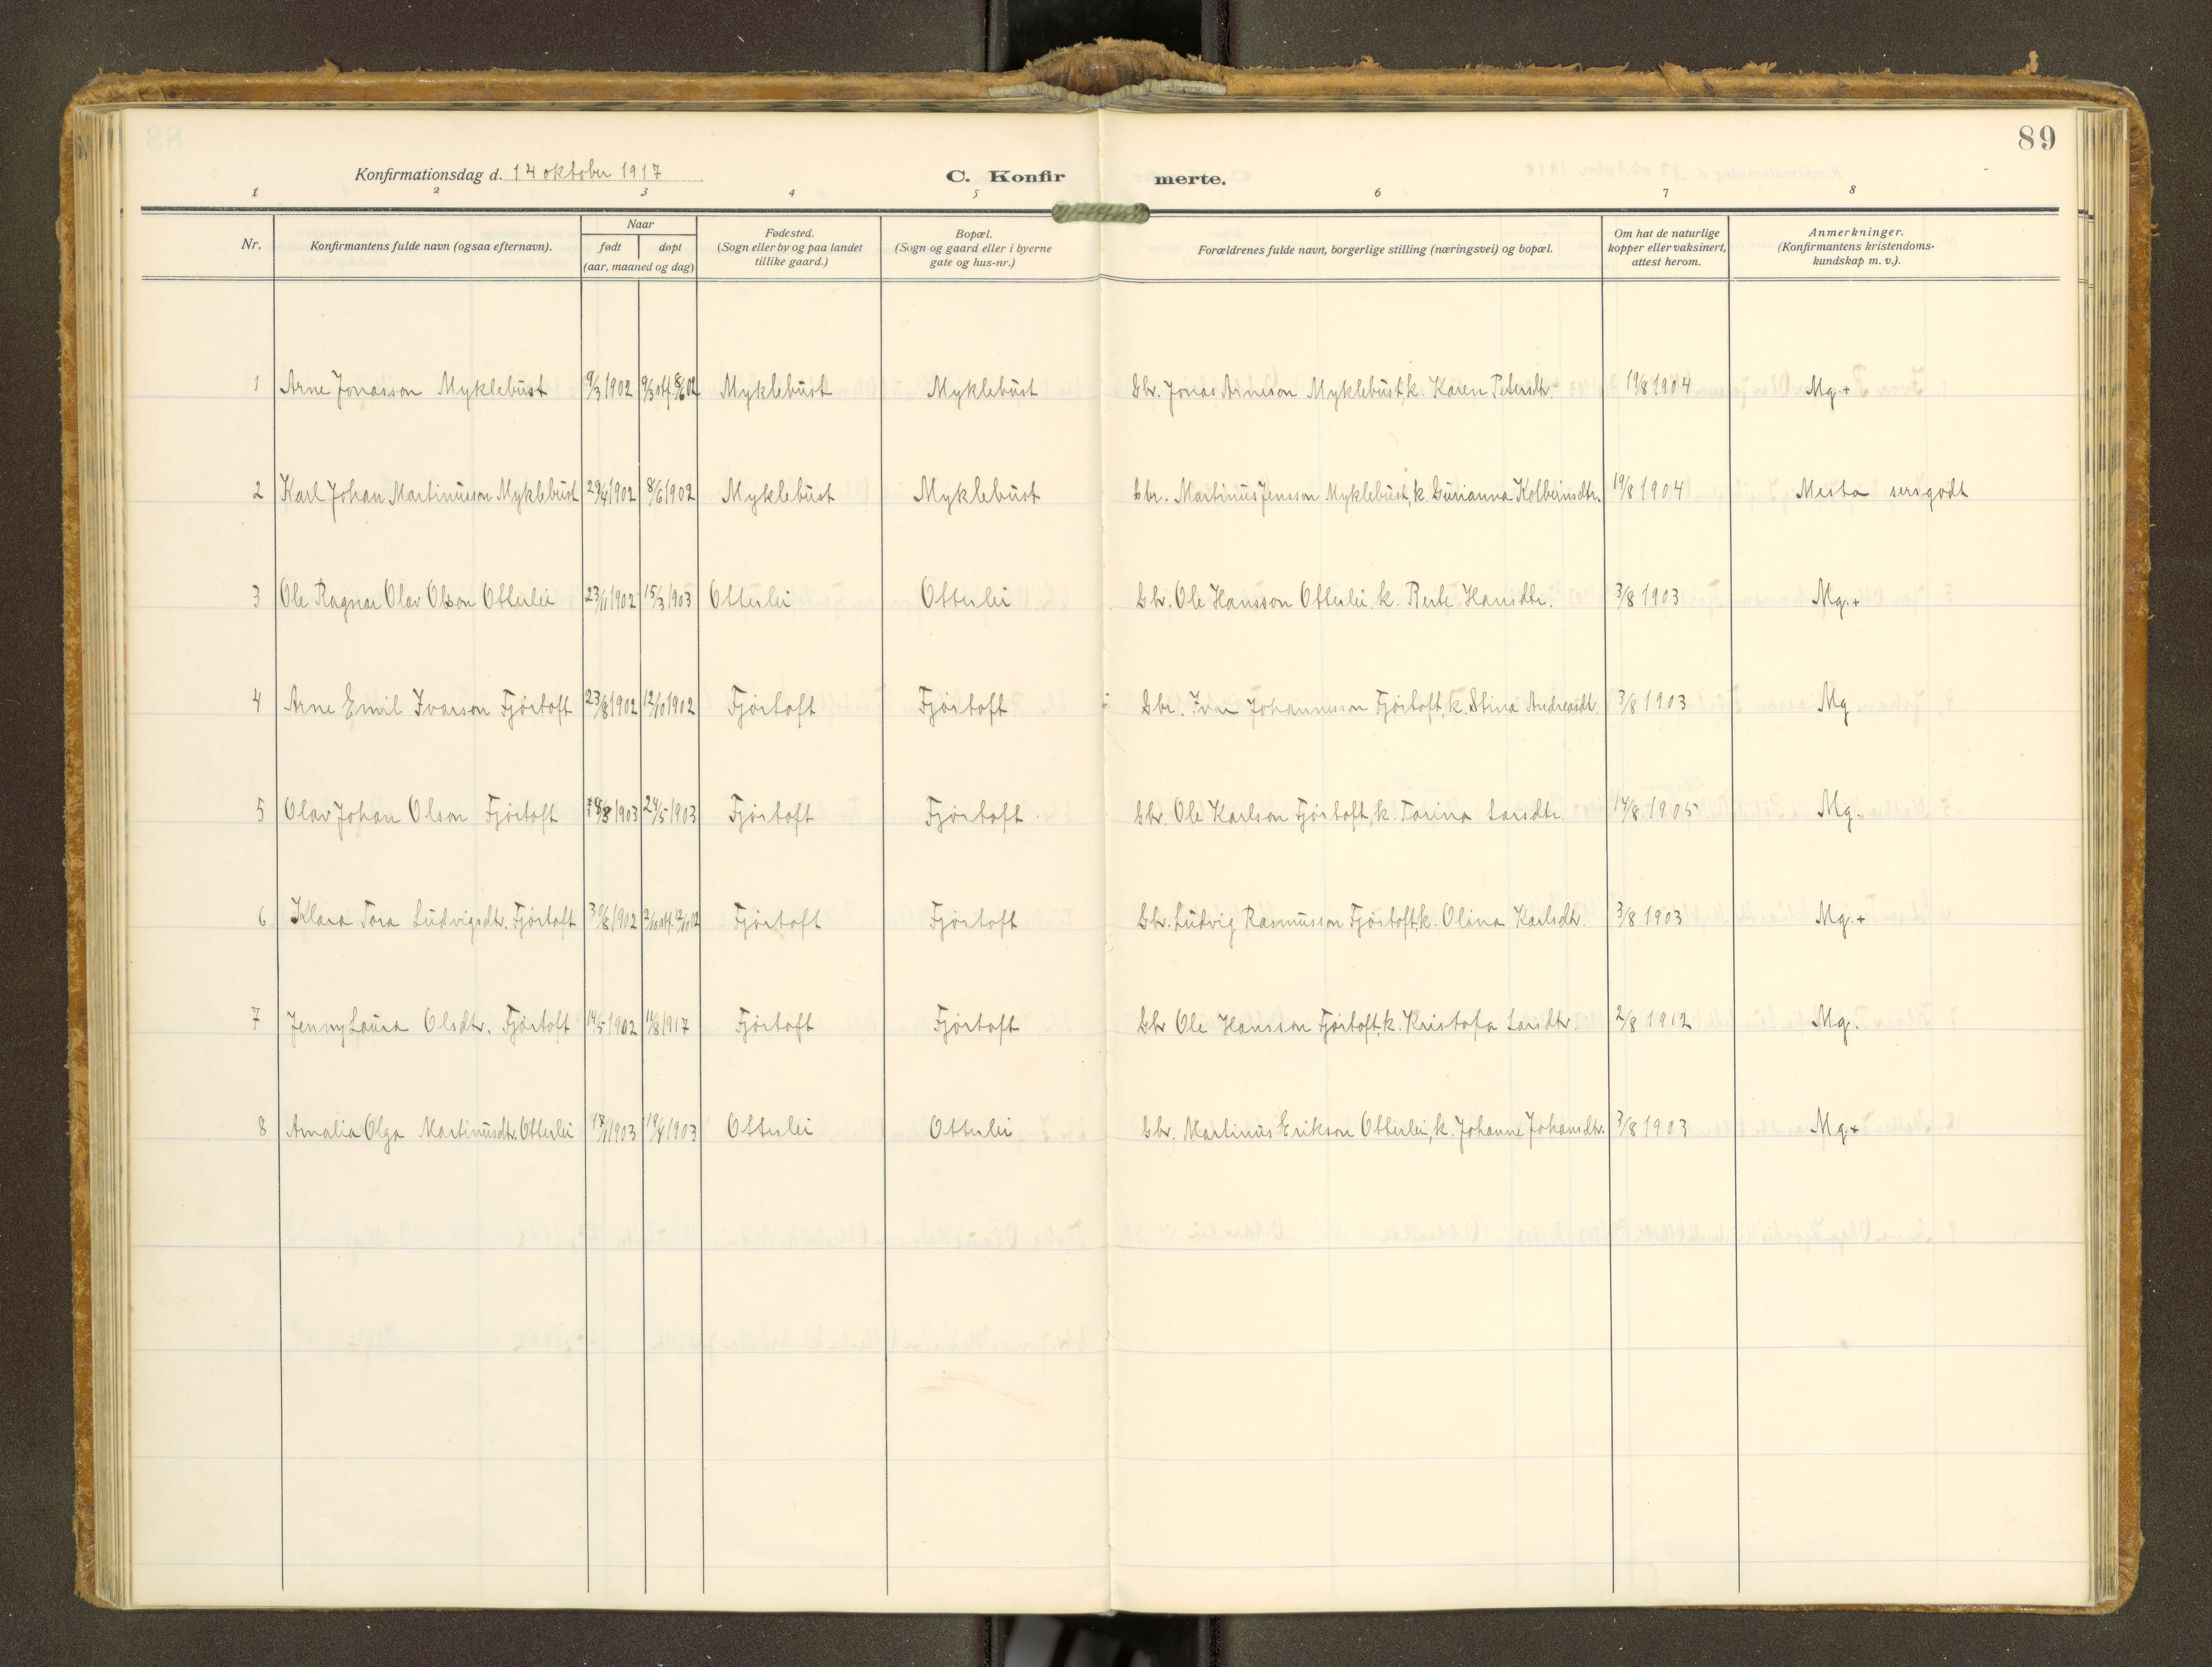 89
Konfirmationsdag d. 14 oktober 1917 C. Konfir merte.
1 2 3 4 5 6 7 8
Nr. Konfirmantens fulde navn (ogsaa efternavn). Naar født døpt (aar, maaned og dag) Fødested. (Sogn eller by og paa landet tillike gaard.) Bopæl. (Sogn og gaard eller i byerne gate og hus-nr.) Forældrenes fulde navn, borgerlige stilling (næringsvei) og bopæl. Om hat de naturlige kopper eller vaksinert, attest herom. Anmerkninger. (Konfirmantens kristendoms-kundskap m. v.).
1 Arne Jonasson Myklebust 9/3 1902 9/3 stf. 8/6 02 Myklebust Myklebust Gbr. Jonas Arneson Myklebust, k. Karen Petersdtr. 19/8 1904 Mg.+
2 Karl Johan Martinusson Myklebust 29/4 1902 8/6 1902 Myklebust Myklebust Gbr. Martinus Jensson Myklebust, k. Gurianna Kolbeinsdtr. 19/8 1904 Mesta sersgodt
3 Ole Ragnar Olav Olson Otterlei 23/11 1902 15/3 1903 Otterlei Otterlei Gbr. Ole Hansson Otterlei, k. Berte Hansdtr. 3/8 1903 Mg.+
4 Arne Emil Ivarson Fjørtoft 23/8 1902 12/10 1902 Fjørtoft Fjørtoft Gbr. Ivar Johannesson Fjørtoft, k. Stina Andreasdt. 3/8 1903 Mg
5 Olav Johan Olson Fjørtoft 1903 24/5 1903 Fjørtoft Fjørtoft Gbr. Ole Karlson Fjørtoft, k. Tarina Larsdtr. 14/8 1905 Mg.
6 Klara Tora Ludvigsdtr. Fjørtoft 30/8 1902 Fjørtoft Fjørtoft Gbr. Ludvig Rasmusson Fjørtoft, k. Olina Karlsdtr. 3/8 1903 Mg.+
7 Jenny Laura Olsdtr. Fjørtoft 14/5 1902 11/8 1917 Fjørtoft Fjørtoft Gbr Ole Hansson Fjørtoft, k. Kristofa Larsdtr. 2/8 1912 Mg.
8 Amalia Olga Martinusdtr. Otterlei 1903 19/4 1903 Otterlei Otterlei Gbr. Martinus Erikson Otterlei, k. Johanne Johansdtr. 3/8 1903 Mg.+